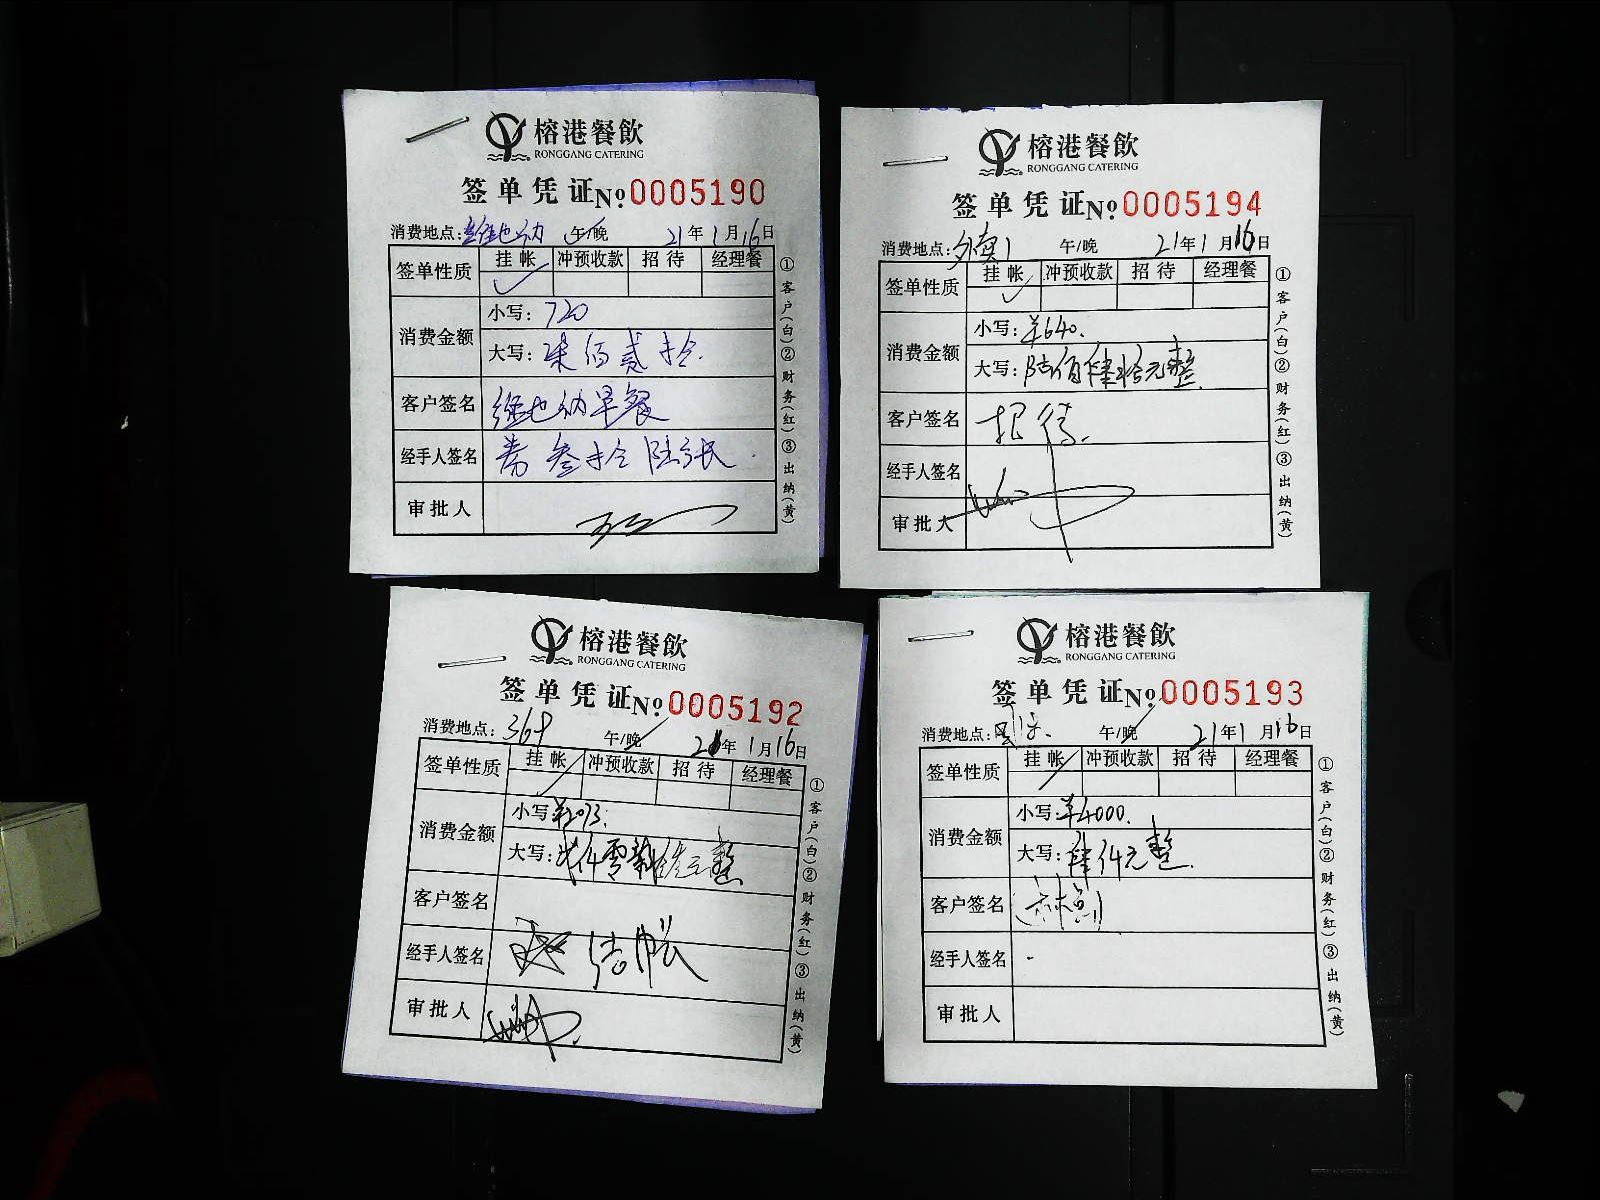 榕港餐飲
RONGGANG CATERING
签单凭证 No. 0005190
消费地点: 维也纳 午/晚 21年1月16日
签单性质 挂帐 冲预收款 招待 经理餐
消费金额 小写: 720
大写: 柒佰贰拾
客户签名 维也纳早餐
经手人签名 劵叁拾陆张
审批人
①客户(白)②财务(红)③出纳(黄)
榕港餐飲
RONGGANG CATERING
签单凭证 No. 0005194
消费地点: 外卖1 午/晚 21年1月16日
签单性质 挂帐 冲预收款 招待 经理餐
消费金额 小写: ¥640.
大写: 陆佰肆拾元整
客户签名 招待.
经手人签名
审批人
①客户(白)②财务(红)③出纳(黄)
榕港餐飲
RONGGANG CATERING
签单凭证 No. 0005192
消费地点: 369 午/晚 21年1月16日
签单性质 挂帐 冲预收款 招待 经理餐
消费金额 小写: ¥2093.
大写: 贰仟零玖拾叁元整
客户签名
经手人签名 结帐
审批人
①客户(白)②财务(红)③出纳(黄)
榕港餐飲
RONGGANG CATERING
签单凭证 No. 0005193
消费地点: 午/晚 21年1月16日
签单性质 挂帐 冲预收款 招待 经理餐
消费金额 小写: ¥4000.
大写: 肆仟元整.
客户签名
经手人签名
审批人
①客户(白)②财务(红)③出纳(黄)